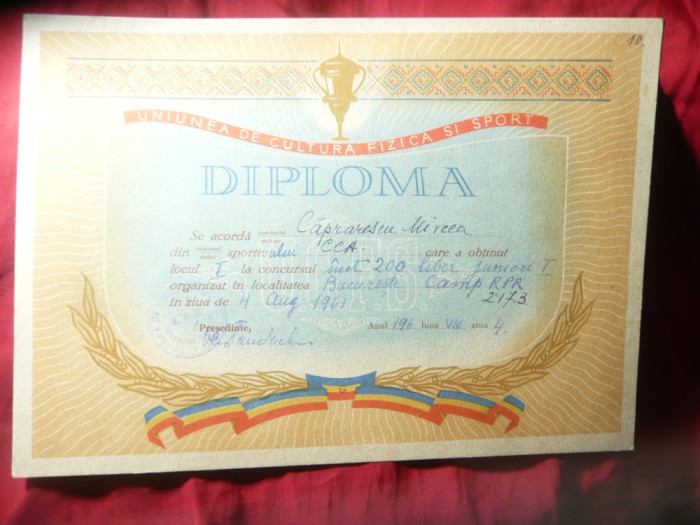 10.
UNIUNEA DE CULTURA FIZICA SI SPORT
DIPLOMA
Se acordă Căprarescu Mircea
din sportivului CCA care a obținut
locul I la concursul înot 200 liber juniori I
organizat în localitatea București Camp RPR
în ziua de 4 Aug 1961 2'17.3
Președinte, Anul 196 luna VIII ziua 4.